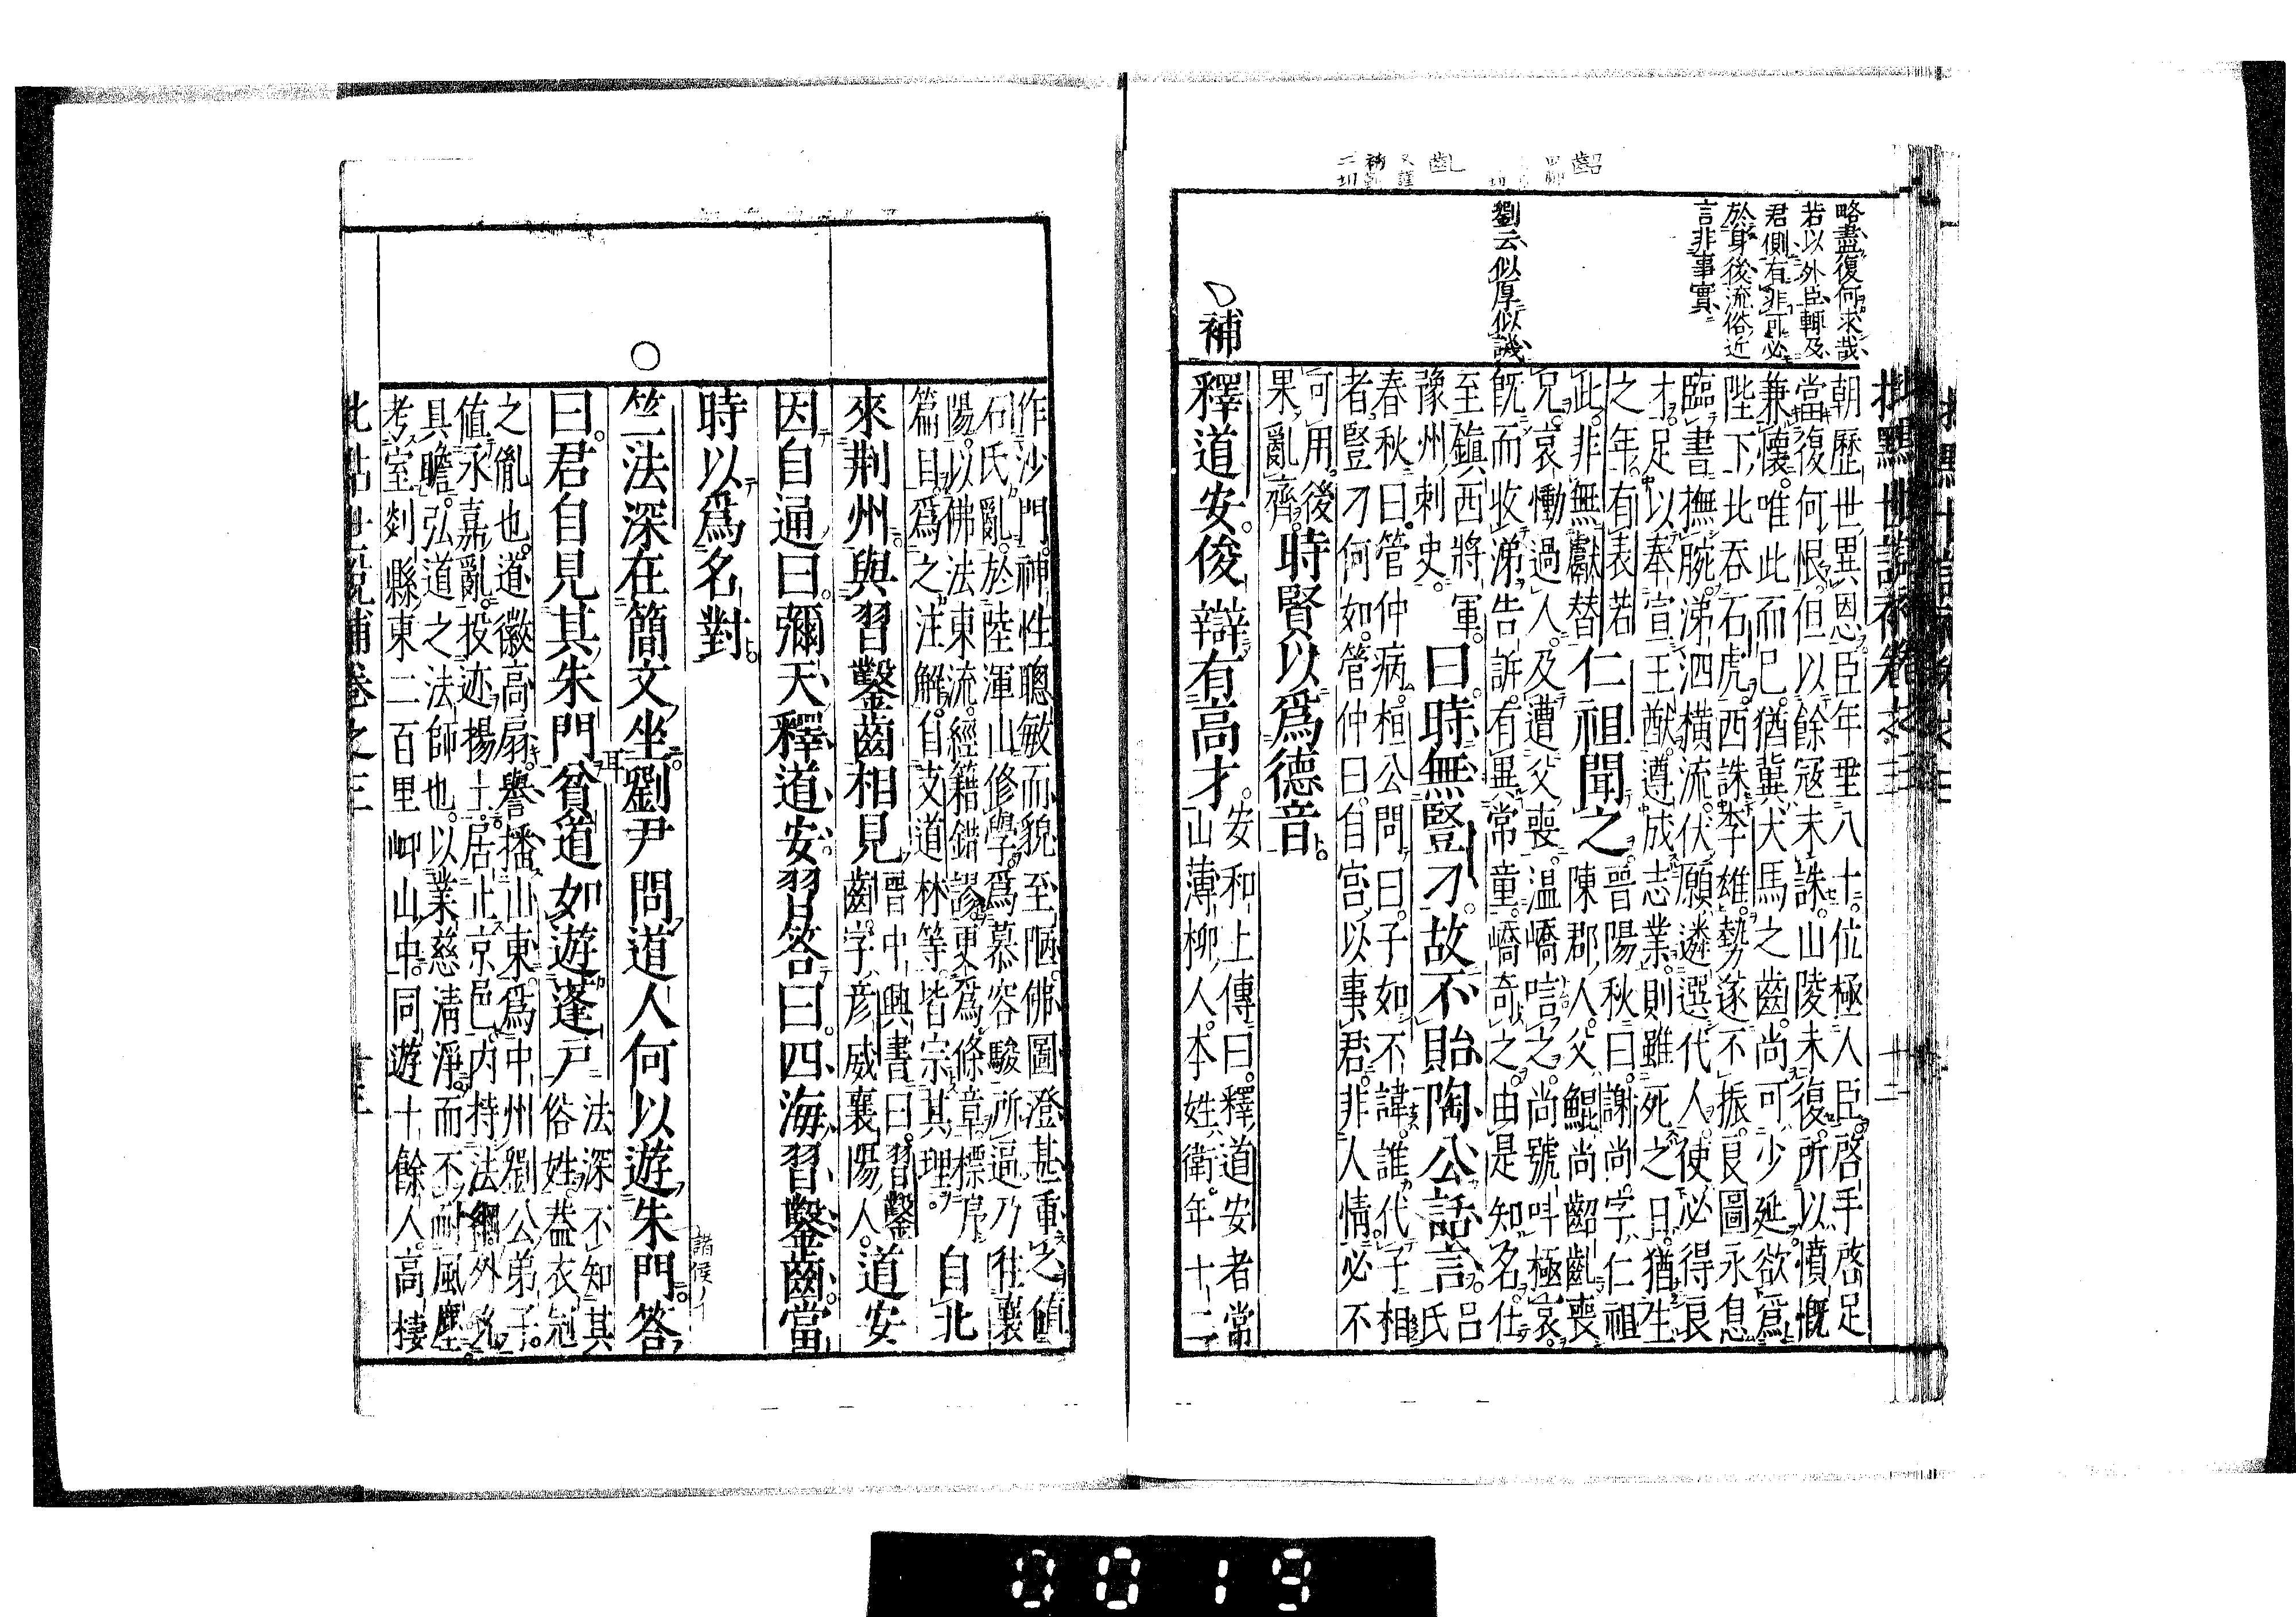 略盡復何求哉
若以外臣輙及
君側有非可必
於身後流俗近
言非事實
劉云似厚似譏
補
朝歷世異恩臣年垂八十位極人臣啓手啓足
當復何恨但以餘寇未誅山陵未復所以憤慨
兼懷唯此而已猶冀犬馬之齒尚可少延欲爲
陛下北吞石虎西誅李雄勢遂不振良圖永息
臨書撫腕涕泗橫流伏願遴選代人使必得良
才足以奉宣王猷遵成志業則雖死之日猶生
之年有表若
此非無獻替
仁祖聞之
晉陽秋曰謝尚字仁祖
陳郡人父鯤尚齠齔喪
兄哀慟過人及遭父喪温嶠唁之尚號呌極哀
旣而收涕告訴有異常童嶠奇之由是知名仕
至鎮西將軍
豫州刺史
曰時無豎刁故不貽陶公話言
呂氏
春秋曰管仲病桓公問曰子如不諱誰代子相
者豎刁何如管仲曰自宮以事君非人情必不
可用後
果亂齊
時賢以爲德音
釋道安俊辯有高才
安和上傳曰釋道安者常
山薄柳人本姓衛年十二
作沙門神性聰敏而貌至陋佛圖澄甚重之值
石氏亂於陸渾山修學爲慕容駿所逼乃往襄
陽以佛法東流經籍錯謬更爲條章標序
篇目爲之注解自支道林等皆宗其理
自北
來荆州與習鑿齒相見
晉中興書曰習鑿
齒字彥威襄陽人
道安
因自通曰彌天釋道安習答曰四海習鑿齒當
時以爲名對
竺法深在簡文坐劉尹問道人何以遊朱門答
諸侯ノ亻
曰君自見其朱門貧道如遊蓬戸
耳
法深不知其
俗姓葢衣冠
之胤也道徽高扇譽播山東爲中州劉公弟子
值永嘉亂投迹揚土居止京邑内持法綱外允
具瞻弘道之法師也以業慈淸淨而不耐風塵
考室剡縣東二百里岇山中同遊十餘人高棲